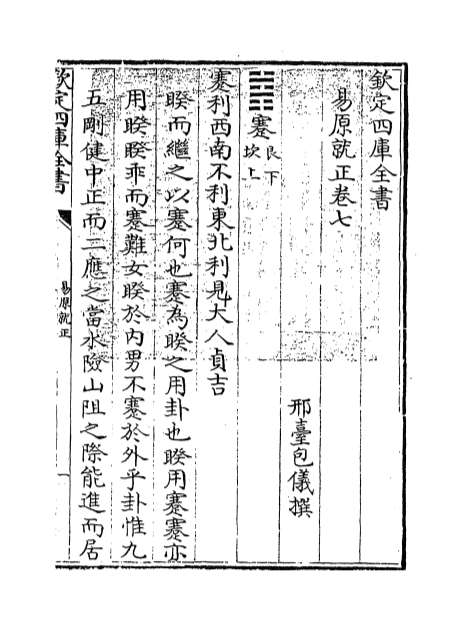 欽定四庫全書
易原就正卷七
邢臺包儀撰
䷦蹇艮下坎上
蹇利西南不利東北利見大人貞吉
睽而繼之以蹇何也蹇為睽之用卦也睽用蹇蹇亦
用睽睽乖而蹇難女睽於內男不蹇於外乎卦惟九
五剛健中正而二應之當水險山阻之際能進而居
欽定四庫全書
易原就正
一